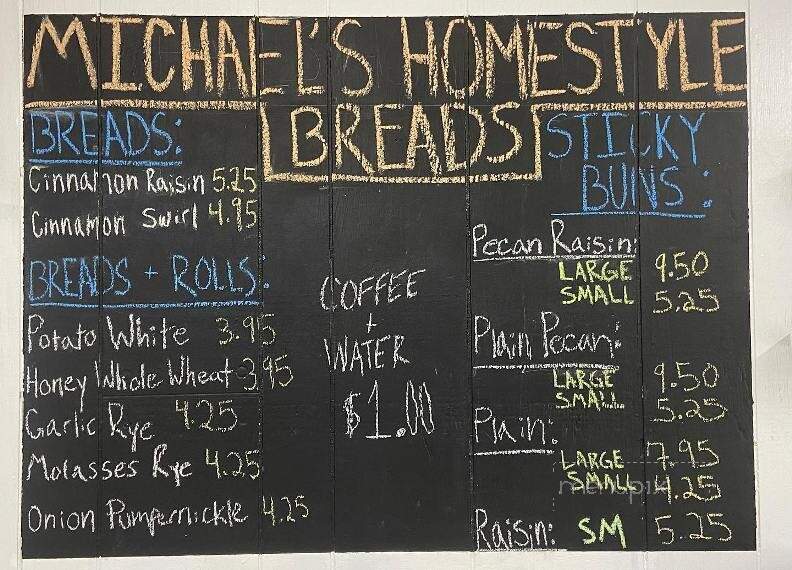 MICHAEL'S HOMESTYLE
BREADS
BREADS:
Cinnamon Raisin 5.25
Cinnamon Swirl 4.95
BREADS + ROLLS:
Potato White 3.95
Honey Whole Wheat 3.95
Garlic Rye 4.25
Molasses Rye 4.25
Onion Pumpernickle 4.25
COFFEE
+
WATER
$1.00
STICKY
BUNS:
Pecan Raisin:
LARGE 9.50
SMALL 5.25
Plain Pecan:
LARGE 9.50
SMALL 5.25
Plain:
LARGE 7.95
SMALL 4.25
Raisin: SM 5.25
menupix